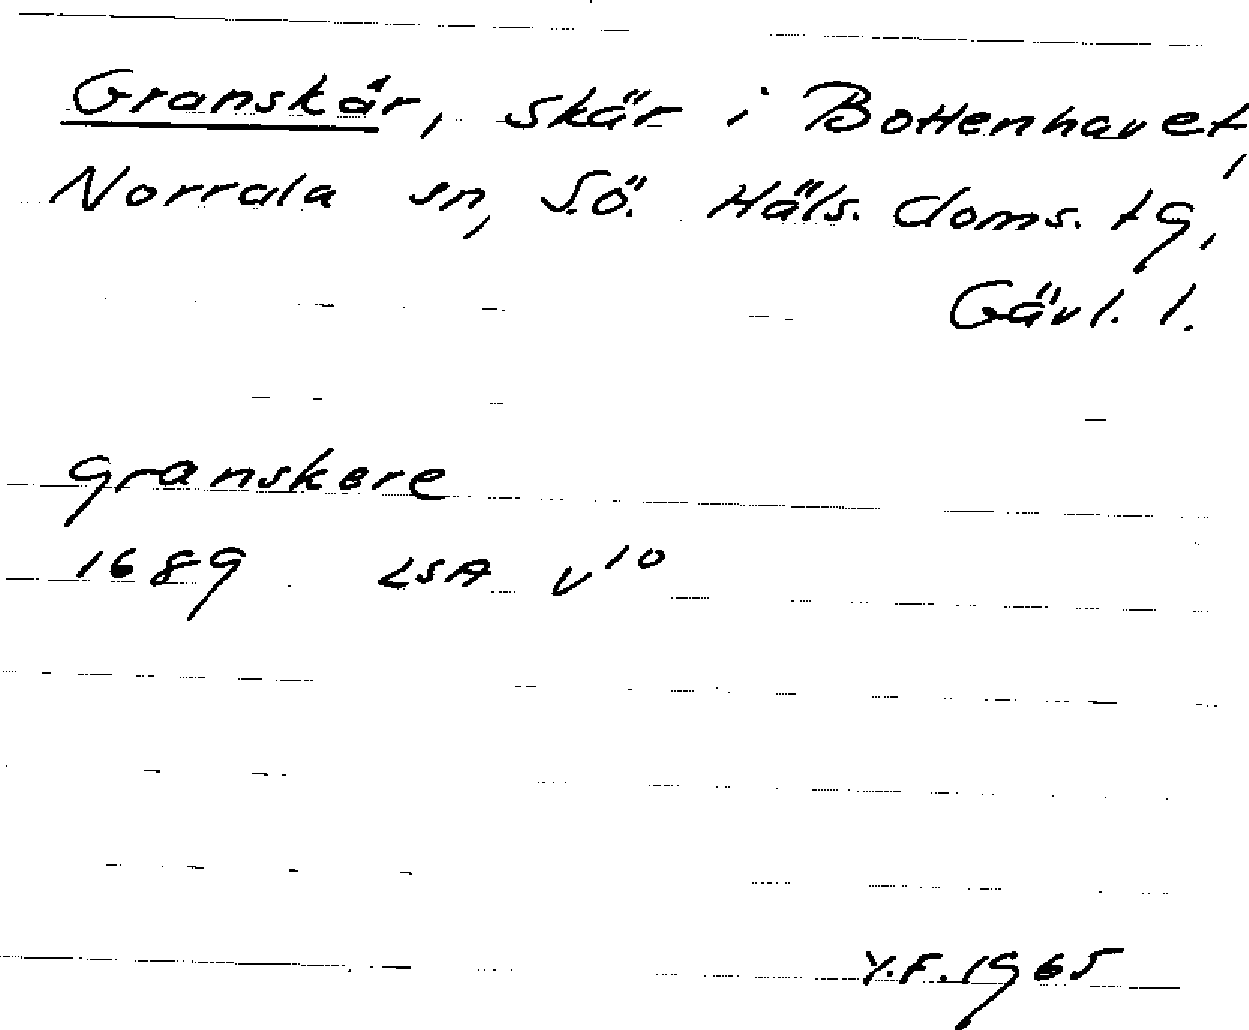 Granskär, skär i Bottenhavet,
Norrala sn, S.Ö. Häls. doms. tg,
Gävl. l.
granskere
1689 LSA V¹⁰
Y.F. 1965